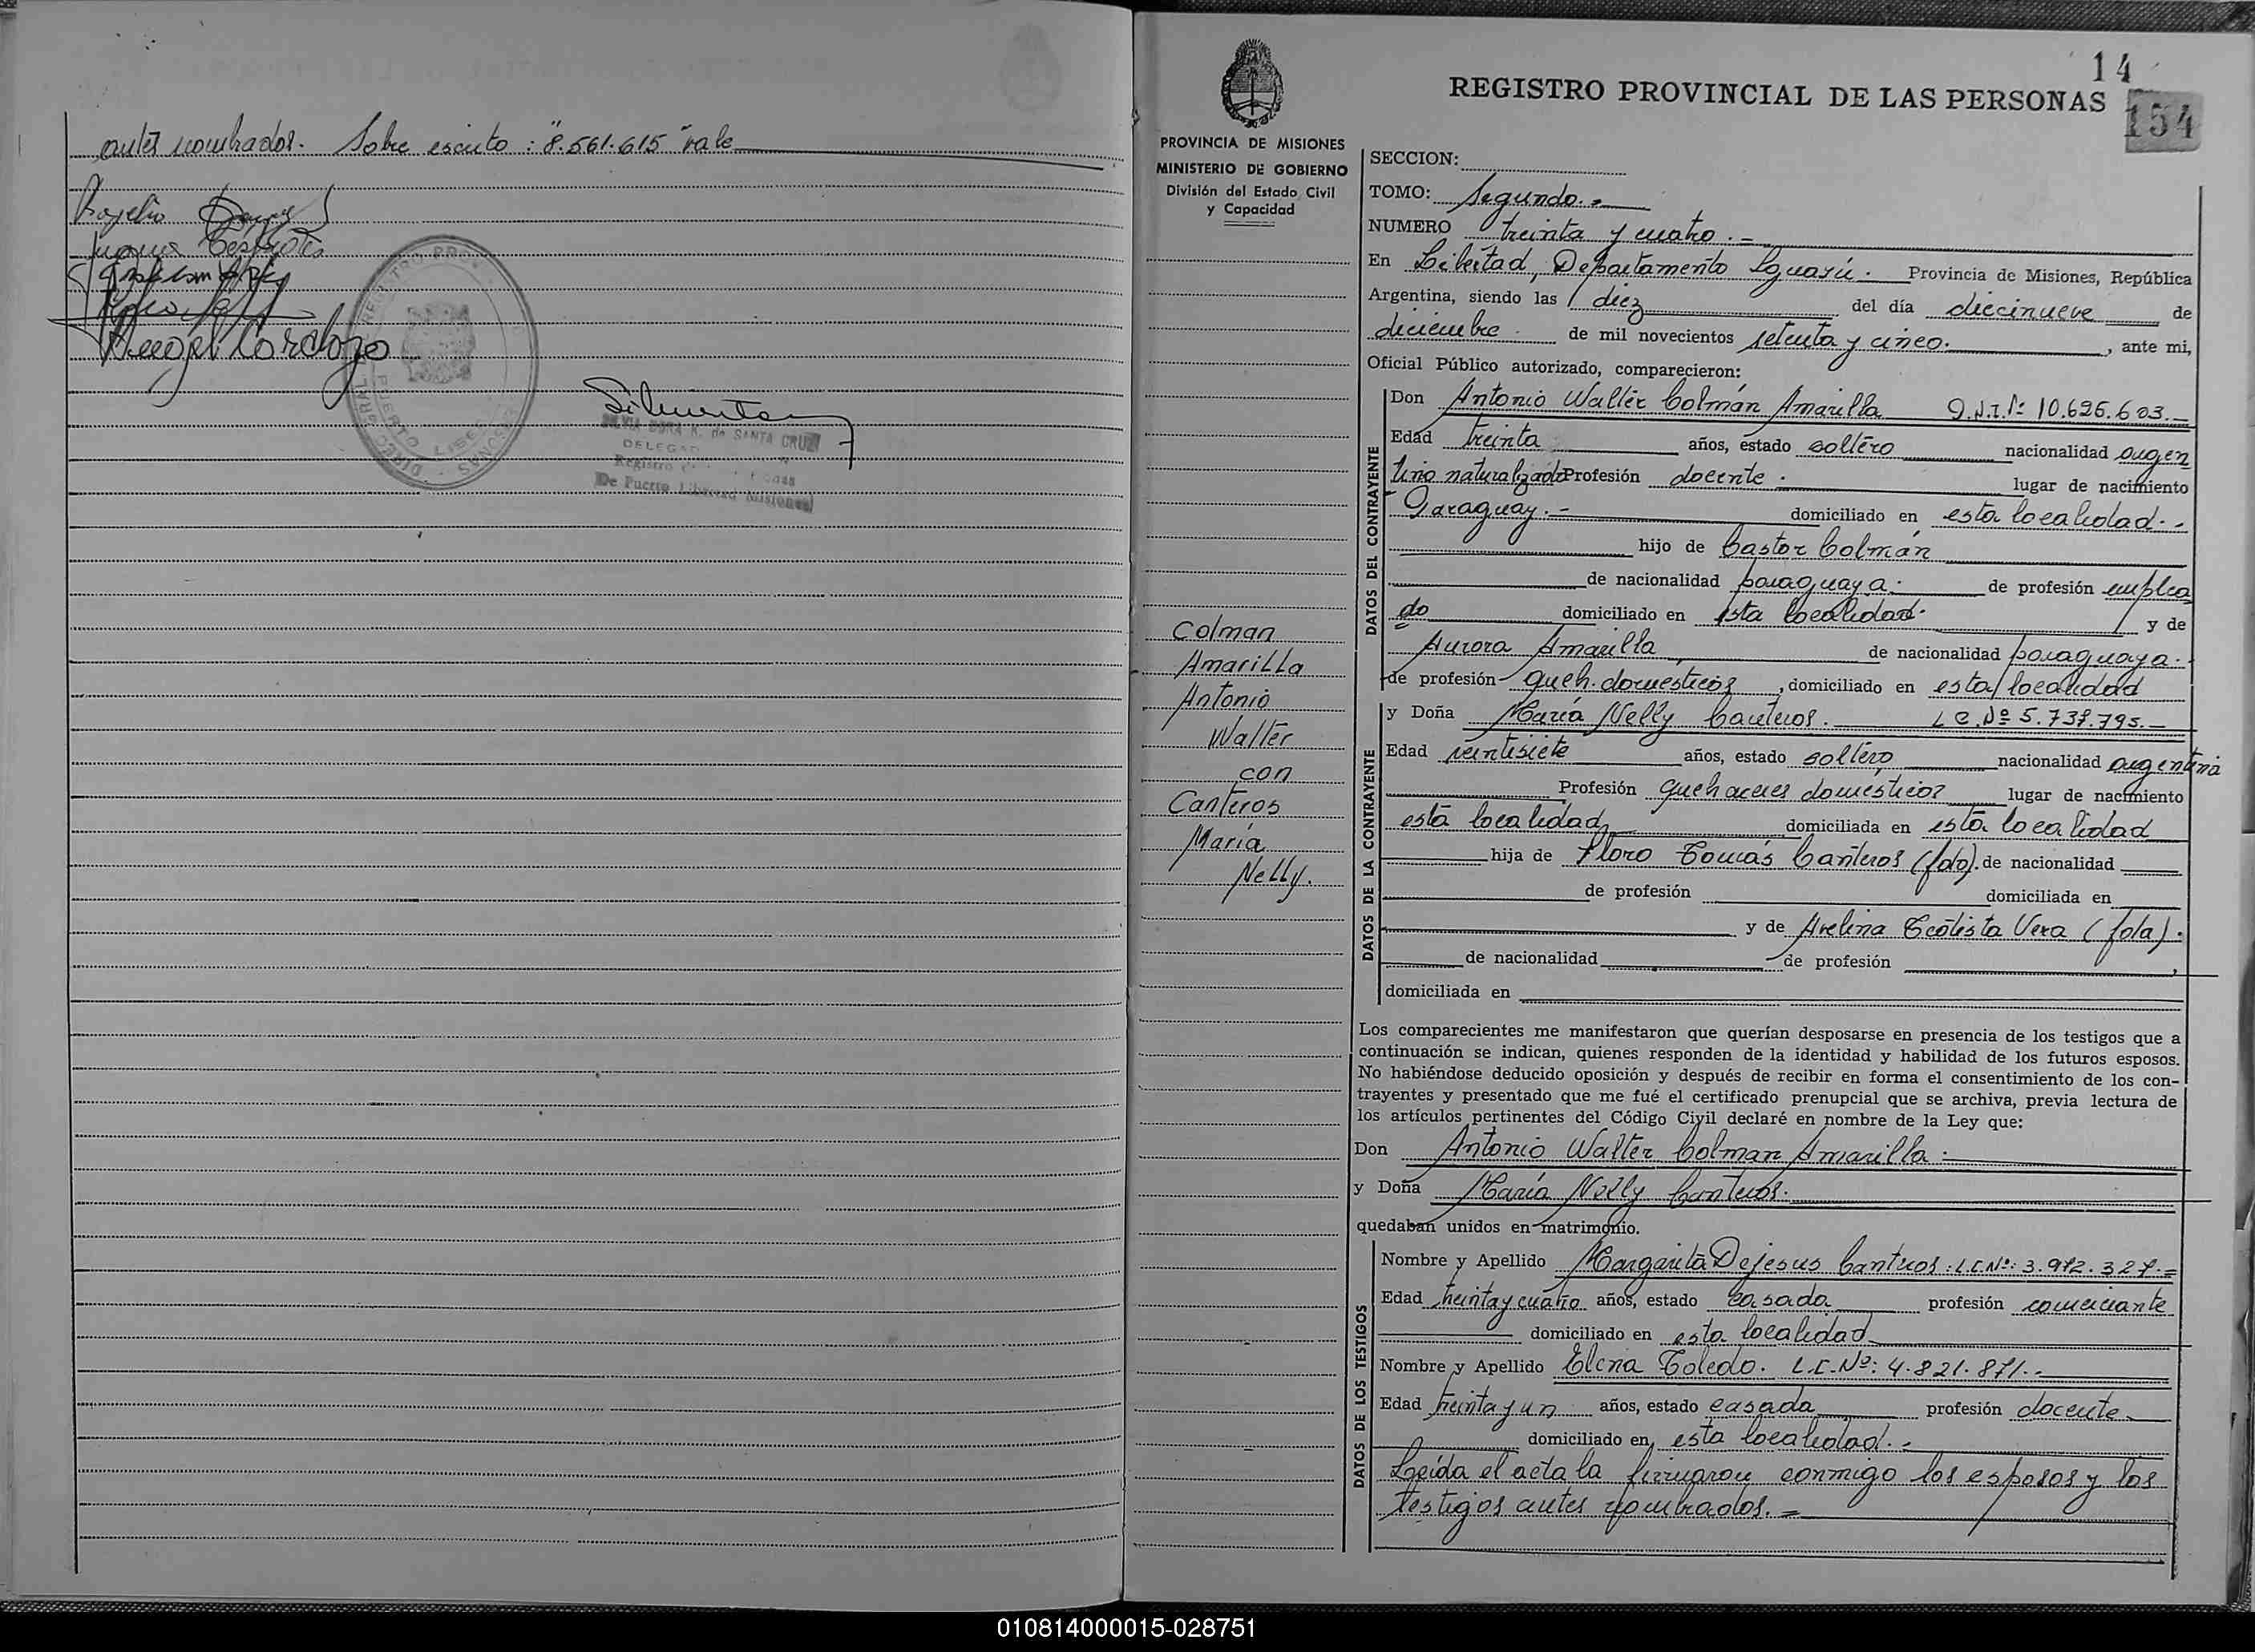 antes nombrados. Sobre escrito: "8.561.615" vale
Rogelio
Angel Cardozo
SILVIA DORA K. de SANTA CRUZ
De Puerto Libertad Misiones
14
REGISTRO PROVINCIAL DE LAS PERSONAS
154
PROVINCIA DE MISIONES
MINISTERIO DE GOBIERNO
División del Estado Civil
y Capacidad
Colman
Amarilla
Antonio
Walter
con
Canteros
María
Nelly.
SECCION:
TOMO: Segundo.-
NUMERO treinta y cuatro.-
En Libertad, Departamento Iguazú. Provincia de Misiones, República
Argentina, siendo las diez del día diecinueve de
diciembre de mil novecientos setenta y cinco. , ante mi,
Oficial Público autorizado, comparecieron:
DATOS DEL CONTRAYENTE
Don Antonio Walter Colmán Amarilla D.N.I.Nº 10.626.603.-
Edad treinta años, estado soltero nacionalidad argen
tino naturalizado Profesión docente. lugar de nacimiento
Paraguay.- domiciliado en esta localidad.-
hijo de Castor Colmán
de nacionalidad paraguaya. de profesión emplea
do domiciliado en esta localidad. y de
Aurora Amarilla de nacionalidad paraguaya.
de profesión queh. domesticos , domiciliado en esta localidad
DATOS DE LA CONTRAYENTE
y Doña María Nelly Canteros. L C.Nº 5.737.795.-
Edad veintisiete años, estado soltero nacionalidad argentina
Profesión quehaceres domésticos lugar de nacimiento
esta localidad domiciliada en esta localidad
hija de Floro Tomás Canteros (fdo). de nacionalidad
de profesión domiciliada en
y de Avelina Teotista Vera (fda).
de nacionalidad de profesión
domiciliada en
Los comparecientes me manifestaron que querían desposarse en presencia de los testigos que a
continuación se indican, quienes responden de la identidad y habilidad de los futuros esposos.
No habiéndose deducido oposición y después de recibir en forma el consentimiento de los con-
trayentes y presentado que me fué el certificado prenupcial que se archiva, previa lectura de
los artículos pertinentes del Código Civil declaré en nombre de la Ley que:
Don Antonio Walter Colman Amarilla.
y Doña María Nelly Canteros.
quedaban unidos en matrimonio.
DATOS DE LOS TESTIGOS
Nombre y Apellido Margarita Dejesus Canteros: L.C.Nº: 3.972.327.=
Edad treinta y cuatro años, estado casada profesión comerciante
domiciliado en esta localidad
Nombre y Apellido Elena Toledo. L.C.Nº: 4.821.871.-
Edad treinta y un años, estado casada profesión docente
domiciliado en esta localidad.-
Leída el acta la firmaron conmigo los esposos y los
testigos antes nombrados.=
010814000015-028751